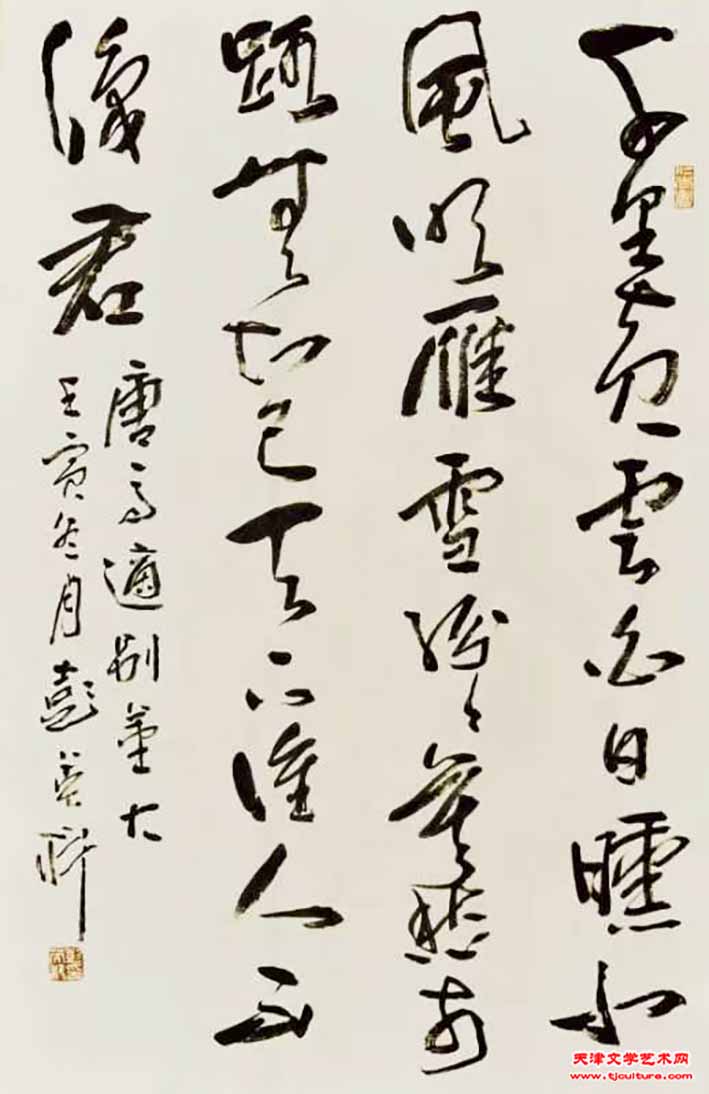 千里黄雲白日曛北
風吹雁雪紛々莫愁前
路無知己天下誰人不
識君
唐高適别董大
壬寅冬月彭英科
天津文学艺术网
www.tjculture.com